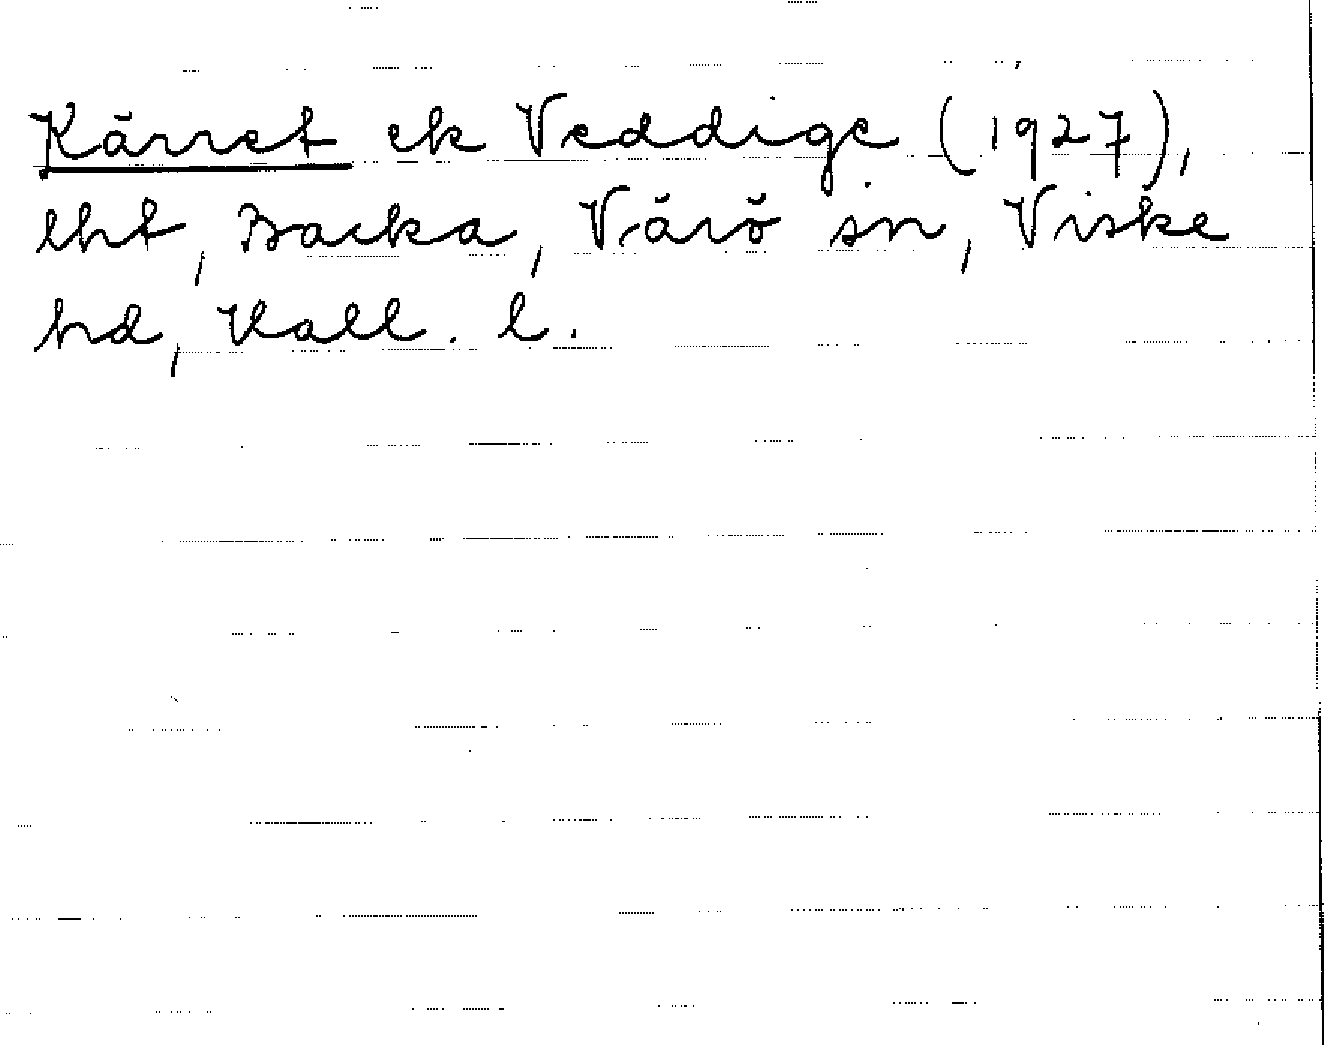 Kärret ek Veddige (1927),
lht, Backa, Värö sn, Viske
hd, Hall. l.